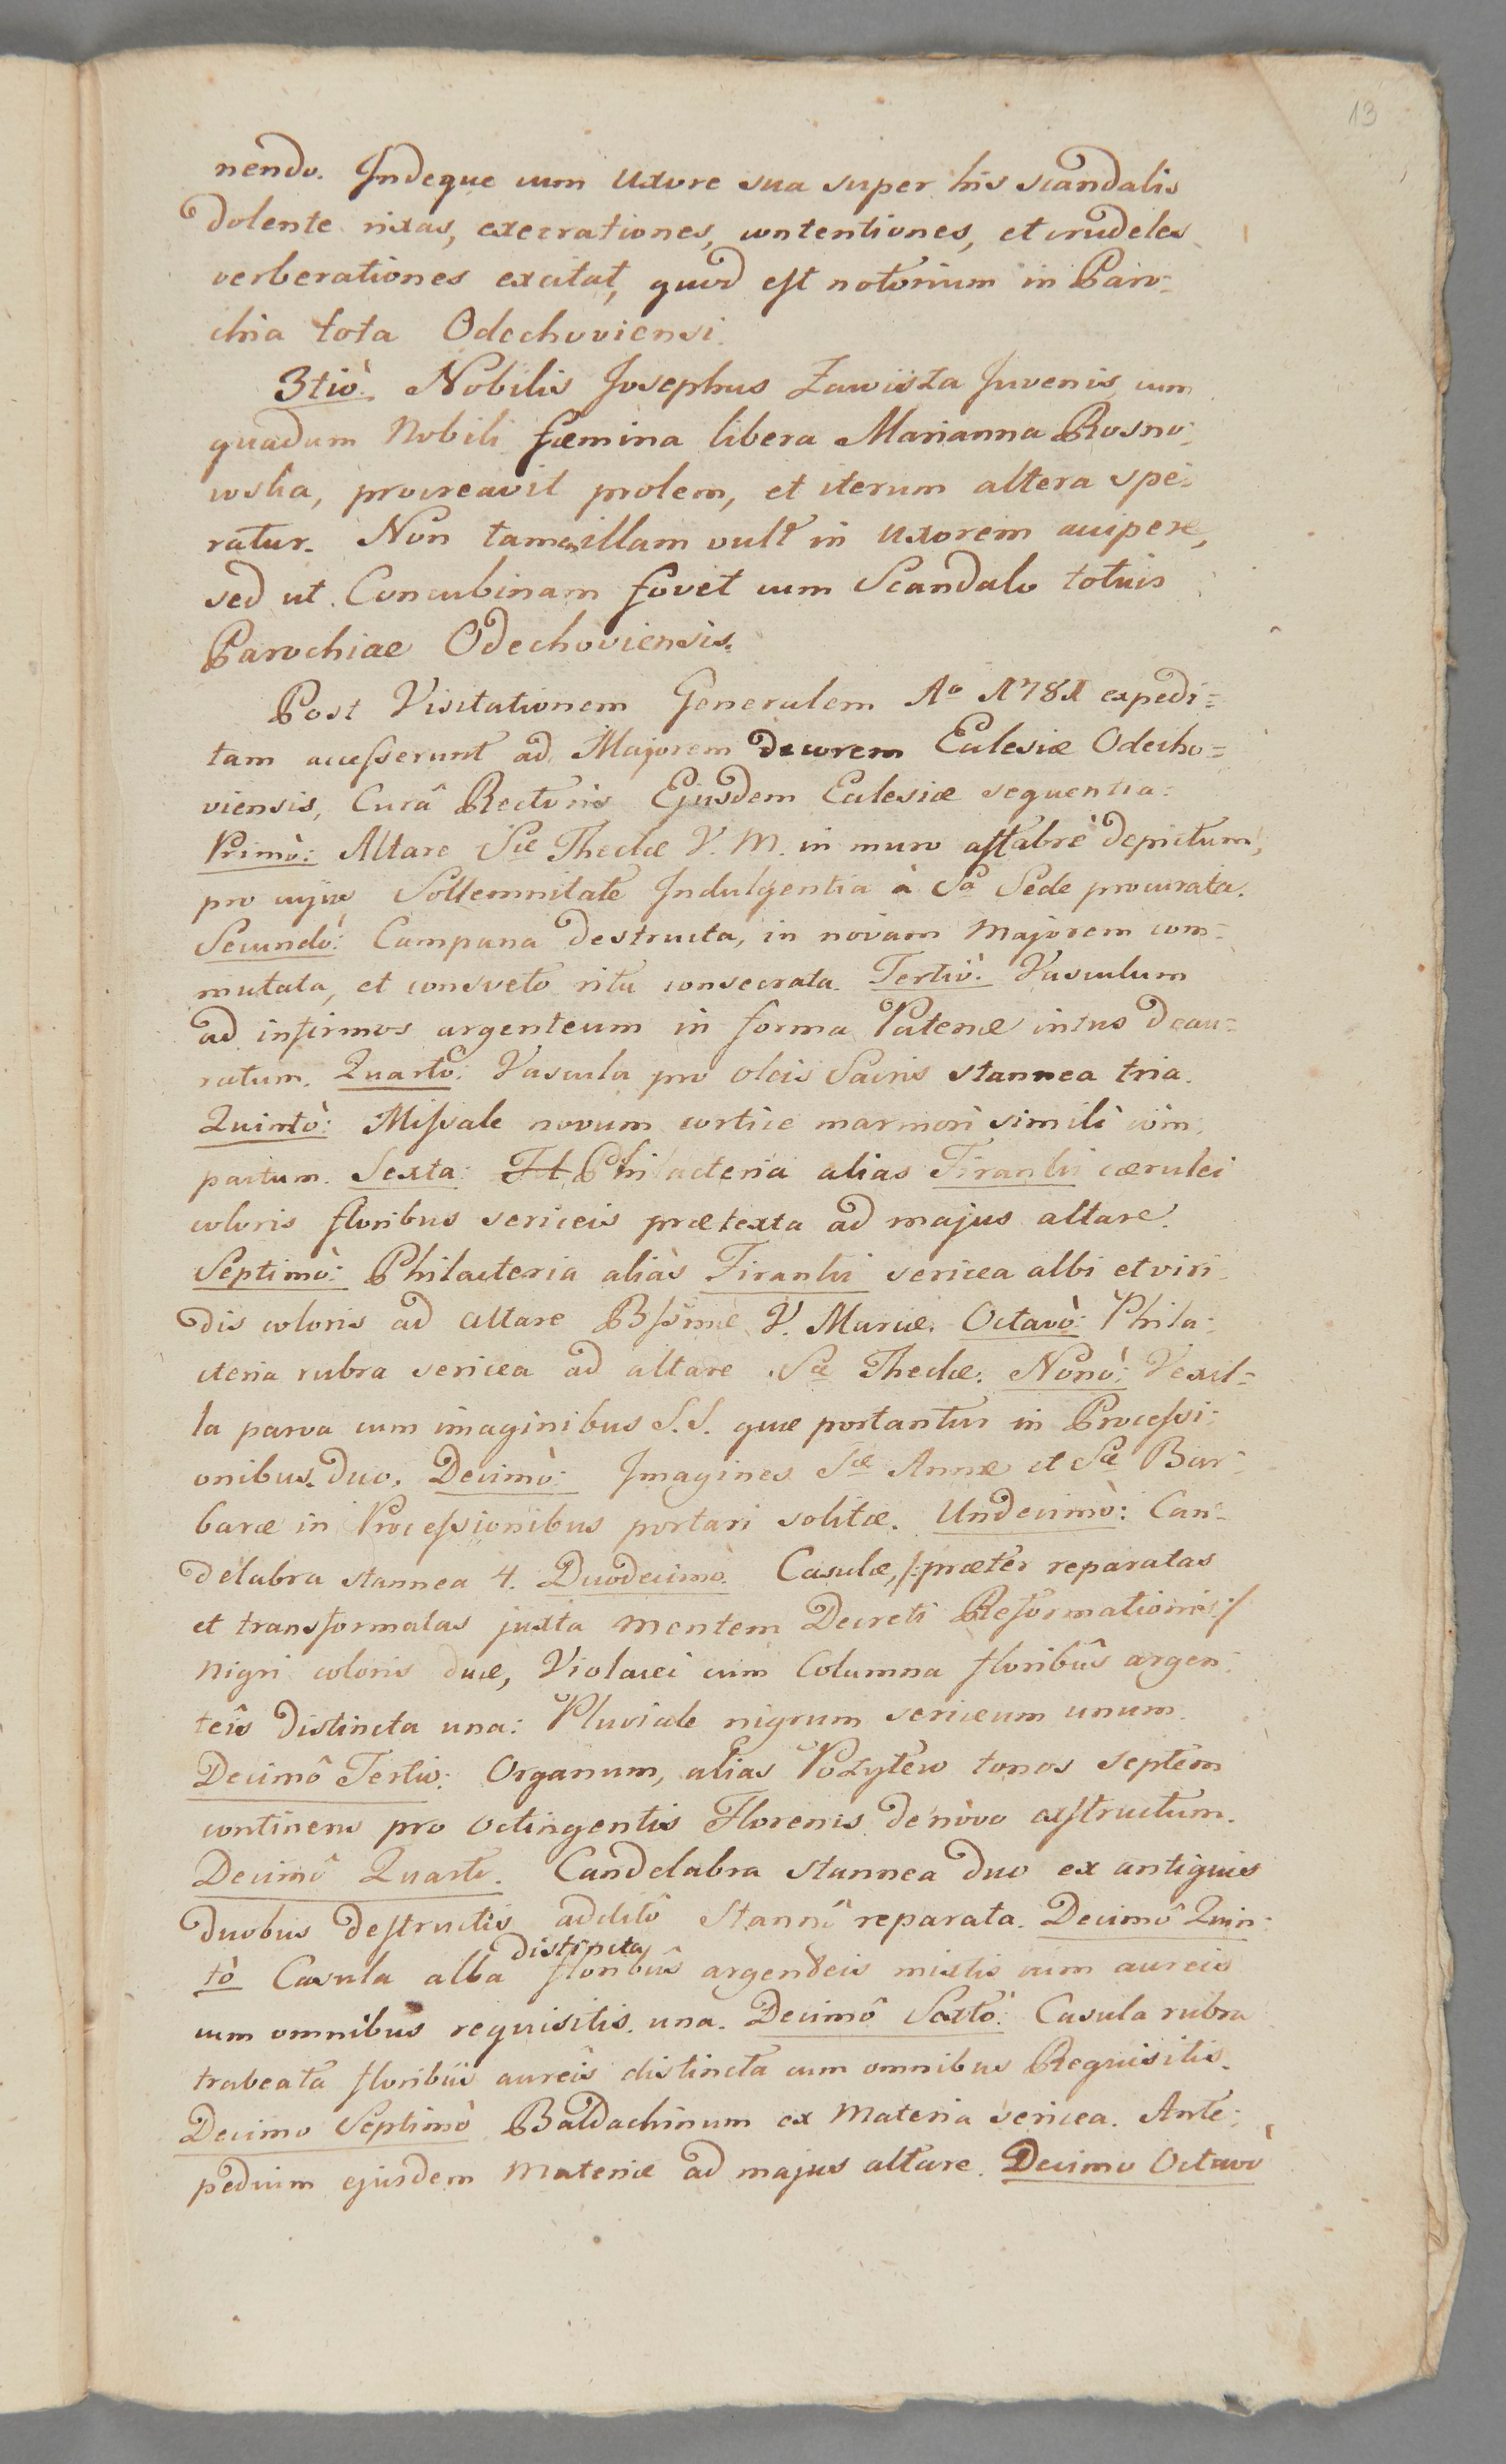 13
nendo. Indeque cum Uxore sua super his scandalis
dolente rixas, execrationes, contentiones, et crudeles
verberationes excitat, quod est notorium in Paro-
chia tota Odechoviensi.
3tiò. Nobilis Josephus Zawiszа Juvenis cum
quadam Nobili fœmina libera Marianna Rosno-
wska, procreavit prolem, et iterum altera spe-
ratur. Non tamen illam vult in Uxorem accipere,
sed ut Concubinam fovet cum Scandalo totius
Parochiae Odechoviensis.
Post Visitationem Generalem Aº 1781 expedi=
tam accesserunt ad Majorem decorem Eclesiæ Odecho=
viensis, Curâ Rectoris Ejusdem Eclesiæ sequentia:
Primò: Altare Sæ Theclæ V. M. in muro affabrè depictum,
pro cujus Sollemnitate Indulgentia à Sa Sede procurata.
Secundò: Campana destructa, in novam Majorem com-
mutata, et consveto ritu consecrata. Tertiò: Vasculum
ad infirmos argenteum in forma Patenæ intus deau-
ratum. Quartò: Vascula pro oleis Sacris stannea tria.
Quintò: Missale novum cortice marmori simili com-
pactum. Sexta: Philacteria alias Firanki cærulei
coloris floribus sericeis prætexta ad majus altare.
Septimò: Philacteria aliàs Firanki sericea albi et viri-
dis coloris ad altare Bssmæ V. Mariæ. Octavò: Phila-
cteria rubra sericea ad altare Sæ Theclæ. Nonò: Vexil=
la parva cum imaginibus S.S. quæ portantur in Processi-
onibus duo. Decimò: Imagines Sæ Annæ et Sæ Bar-
baræ in Processionibus portari solitæ. Undecimò: Can-
delabra stannea 4. Duodecimò. Casulæ, /:præter reparatas
et transformatas juxta mentem Decreti Reformationis:/
nigri coloris duæ, Violacei cum Columna floribûs argen-
teîs distincta una: Pluviale nigrum sericeum unum.
Decimô Tertio: Organum, alias Pozytew tonos septem
continens pro octingentis Florenis de novo exstructum.
Decimô Quarto. Candelabra stannea duo ex antiquis
duobus destructis additô Stannô reparata. Decimô Quin-
tò Casula alba distincta floribûs argenteis mixtis cum aureis
cum omnibus requisitis una. Decimô Sextò: Casula rubra
trabeata floribûs aureîs distincta cum omnibus Requisitis.
Decimo Septimò Baldachinum ex Materia sericea. Ante-
pedium ejusdem Materiæ ad majus altare. Decimo Octavò